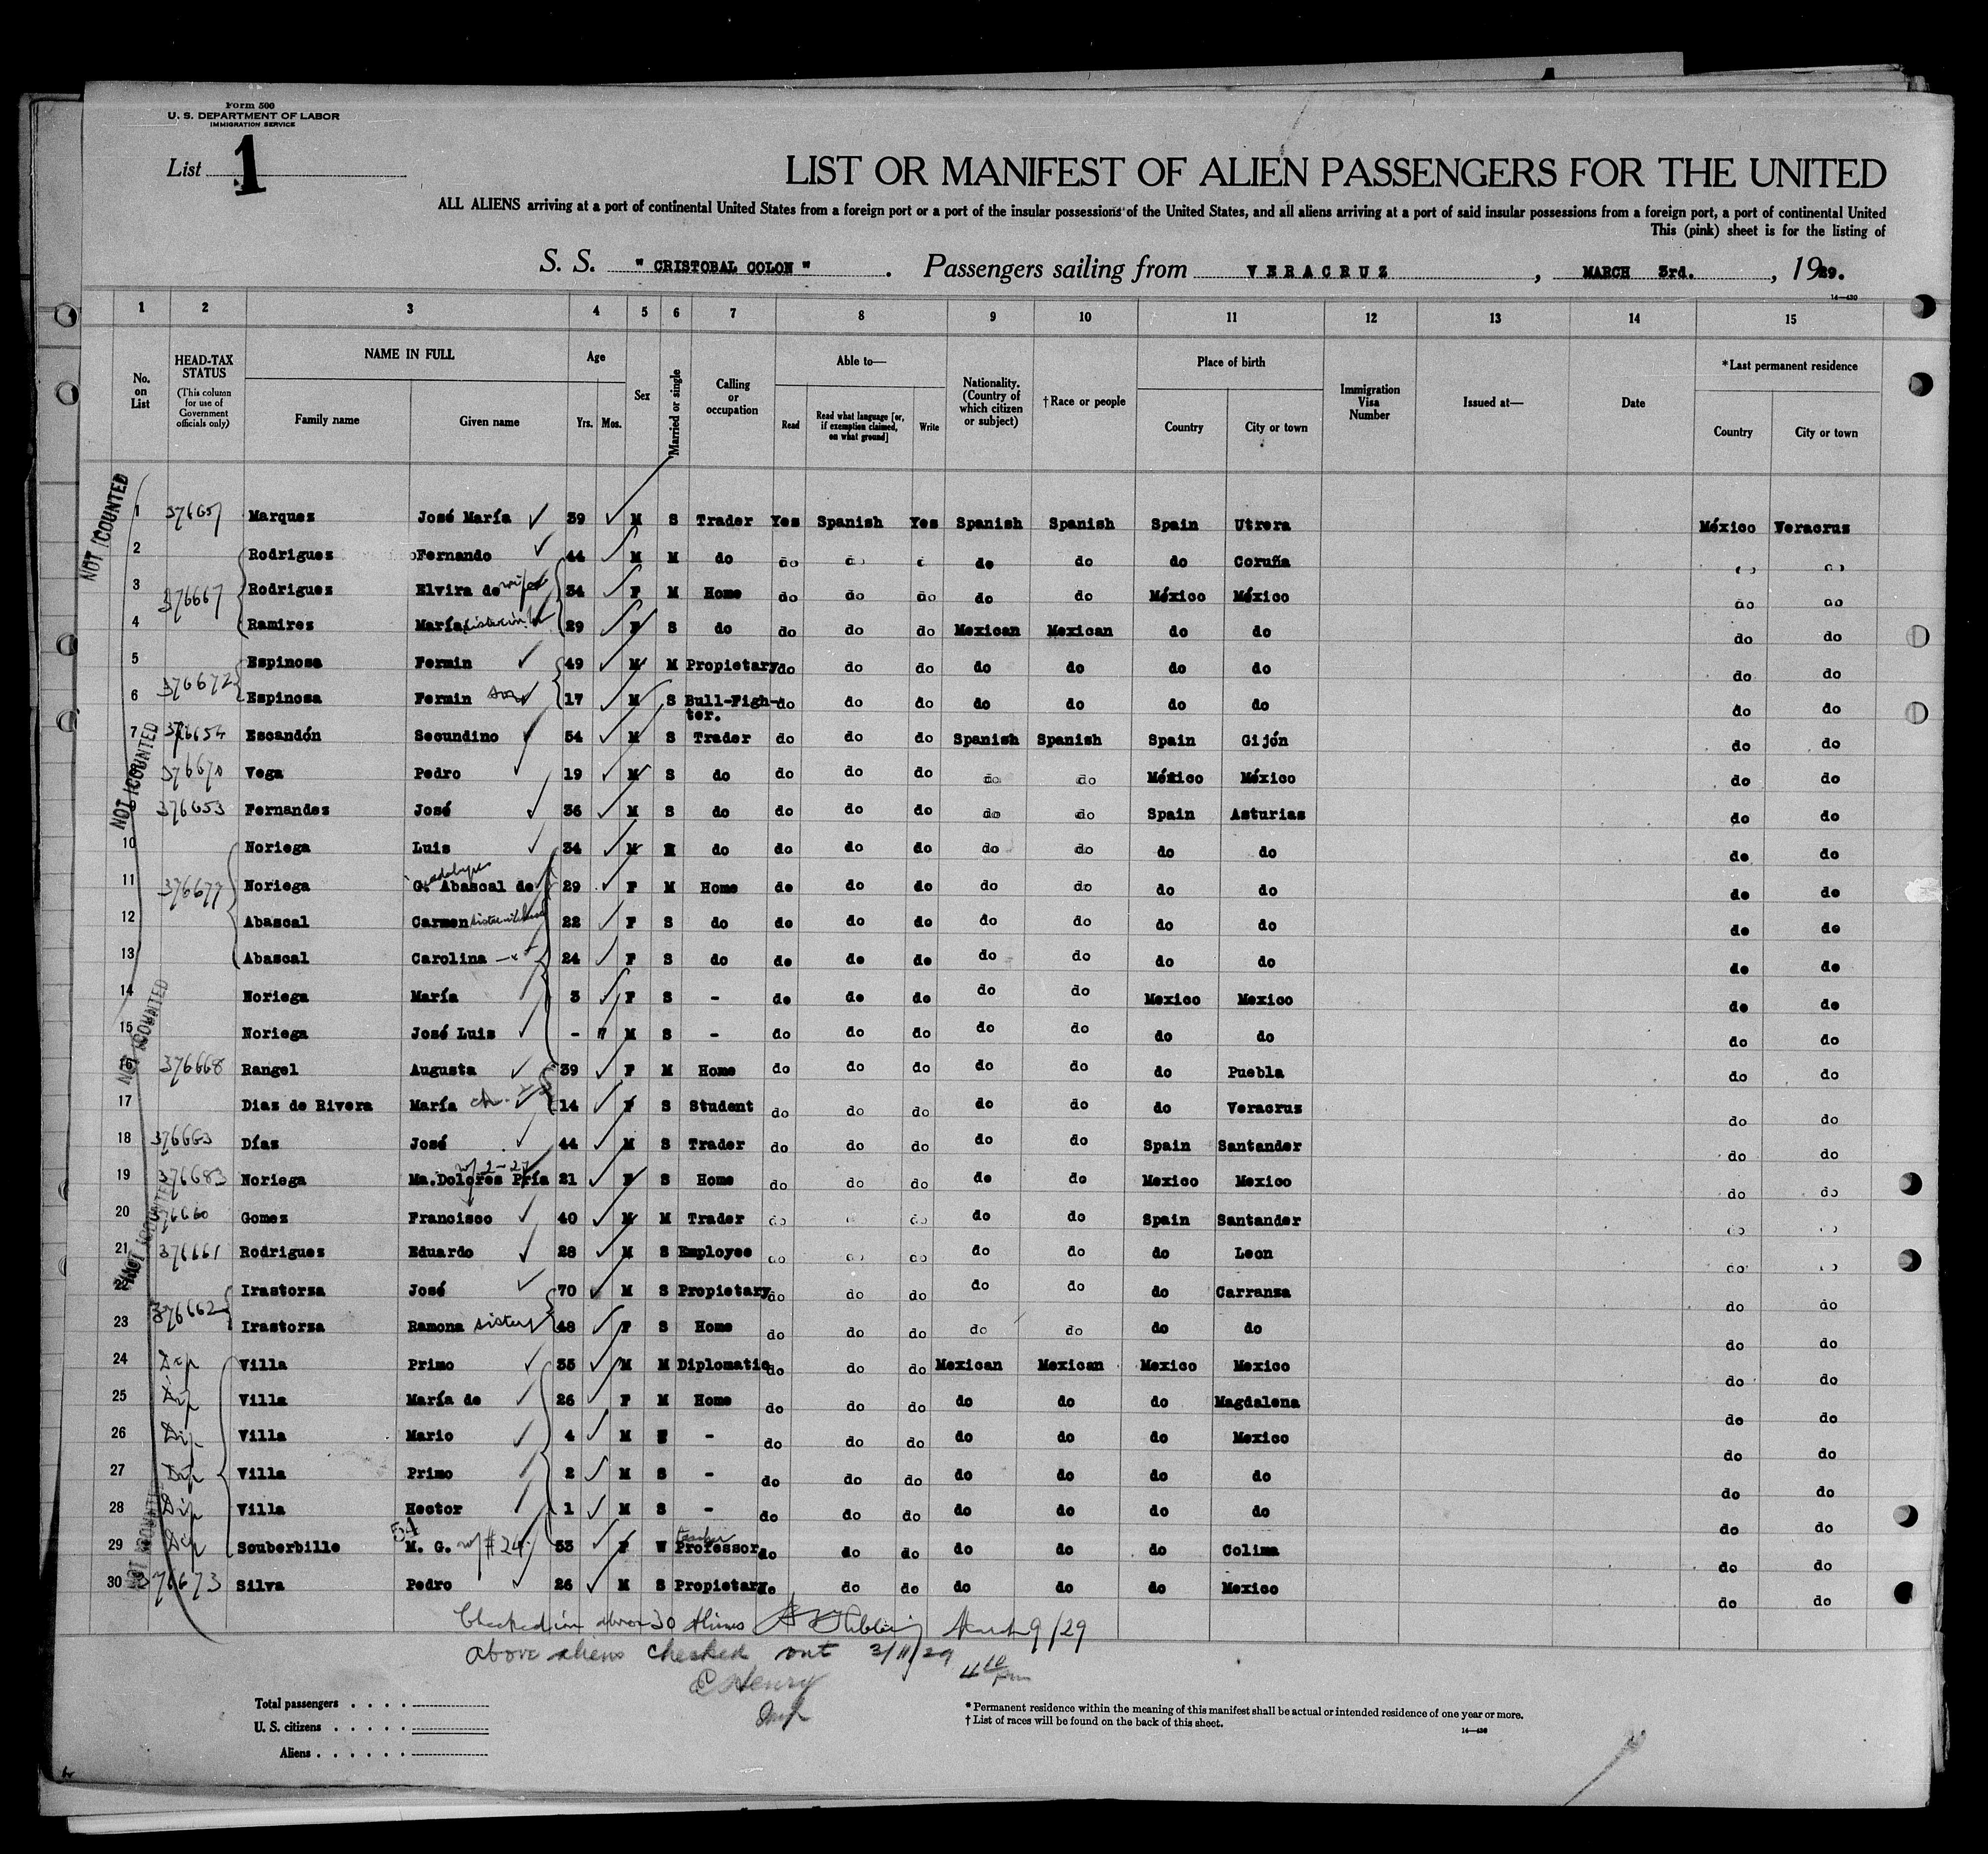 Form 500
U. S. DEPARTMENT OF LABOR
IMMIGRATION SERVICE
List 1
LIST OR MANIFEST OF ALIEN PASSENGERS FOR THE UNITED
ALL ALIENS arriving at a port of continental United States from a foreign port or a port of the insular possessions of the United States, and all aliens arriving at a port of said insular possessions from a foreign port, a port of continental United
This (pink) sheet is for the listing of
S. S. " CRISTOBAL COLON " . Passengers sailing from VERACRUZ , MARCH 3rd. , 1929.
14—430
1 2 3 4 5 6 7 8 9 10 11 12 13 14 15
No. on List
HEAD-TAX STATUS
(This column for use of Government officials only)
NAME IN FULL
Family name Given name
Age
Yrs. Mos.
Sex
Married or single
Calling or occupation
Able to—
Read
Read what language [or, if exemption claimed, on what ground]
Write
Nationality. (Country of which citizen or subject)
† Race or people
Place of birth
Country City or town
Immigration Visa Number
Issued at—
Date
* Last permanent residence
Country City or town
NOT COUNTED
1 376657 Marquez José María 39 M S Trader Yes Spanish Yes Spanish Spanish Spain Utrera México Veracruz
2 Rodriguez Fernando 44 M M do do do do do do Coruña do do
3 376667 Rodriguez Elvira de wife 34 F M Home do do do do do México México do do
4 Ramirez María 29 F S do do do do Mexican Mexican do do do do
5 Espinosa Fermin 49 M M Propietary do do do do do do do do do
6 376672 Espinosa Fermin son 17 M S Bull-Figh-ter. do do do do do do do do do
7 376654 Escandón Secundino 34 M S Trader do do do Spanish Spanish Spain Gijón do do
NOT COUNTED
376670 Vega Pedro 19 M S do do do do do do México México do do
376653 Fernandez José 36 M S do do do do do do Spain Asturias do do
10 Noriega Luis 34 M M do do do do do do do do do do
11 376677 Noriega Guadalupe G. Abascal de 29 F M Home do do do do do do do do do
12 Abascal Carmen 22 F S do do do do do do do do do do
13 Abascal Carolina 24 F S do do do do do do do do do do
14 Noriega María 3 F S - do do do do do Mexico Mexico do do
15 Noriega José Luis - 11 M S - do do do do do do do do do
NOT COUNTED
16 376668 Rangel Augusta 39 F M Home do do do do do do Puebla do do
17 Diaz de Rivera María ch. 14 F S Student do do do do do do Veracruz do do
18 376663 Díaz José 44 M S Trader do do do do do Spain Santander do do
19 376683 Noriega Ma.Dolores Pría w/ 2-27 21 F S Home do do do do do Mexico Mexico do do
20 376660 Gomez Francisco 40 M M Trader do do do do do Spain Santander do do
21 376661 Rodriguez Eduardo 28 M S Employee do do do do do do Leon do do
NOT COUNTED
22 Irastorza José 70 M S Propietary do do do do do do Carranza do do
23 376662 Irastorza Ramona sister 48 F S Home do do do do do do do do do
24 Dip Villa Primo 35 M M Diplomatic do do do Mexican Mexican Mexico Mexico do do
25 Dip Villa María de 26 F M Home do do do do do do Magdalena do do
26 Dip Villa Mario 4 M S - do do do do do do Mexico do do
27 Dip Villa Primo 2 M S - do do do do do do do do do
28 Dip Villa Hector 1 M S - do do do do do do do do do
29 Dip Souberbille 54 M. G. w/ #24 53 F W teacher Professor do do do do do do Colima do do
NOT COUNTED
30 376673 Silva Pedro 26 M S Propietary do do do do do do Mexico do do
Checked in above 30 aliens March 9/29
above aliens checked out 3/11/29 4 10 pm
C Henry
Insp
Total passengers . . . .
U. S. citizens . . . . .
Aliens . . . . . .
* Permanent residence within the meaning of this manifest shall be actual or intended residence of one year or more.
† List of races will be found on the back of this sheet.
14—430